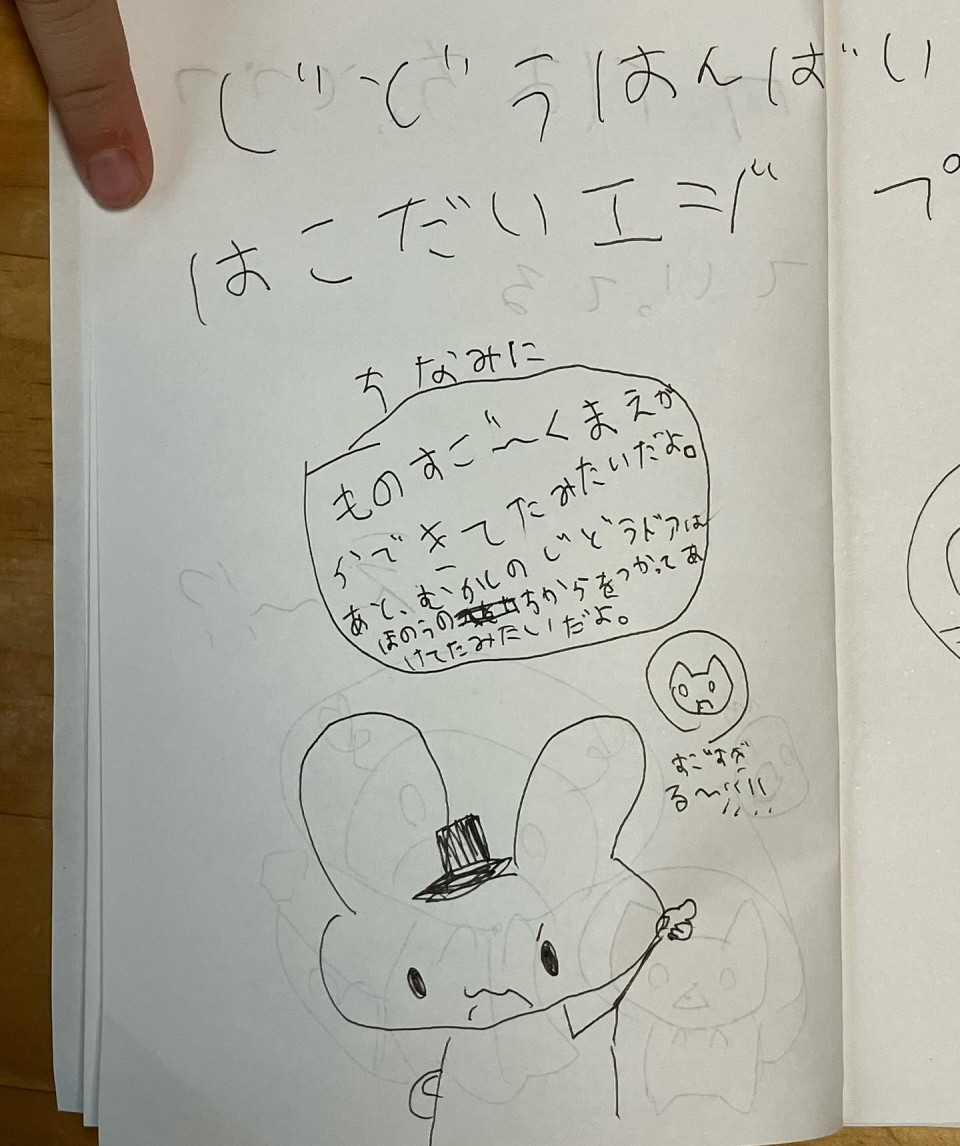 じどうはんばい
はこだいエジプ
ちなみに
ものすご〜くまえが
らできてたみたいだよ。
あと、むかしのじどうドアは
ほのうのちからをつかってあ
けてたみたいだよ。
すごすぎ
る〜!!!